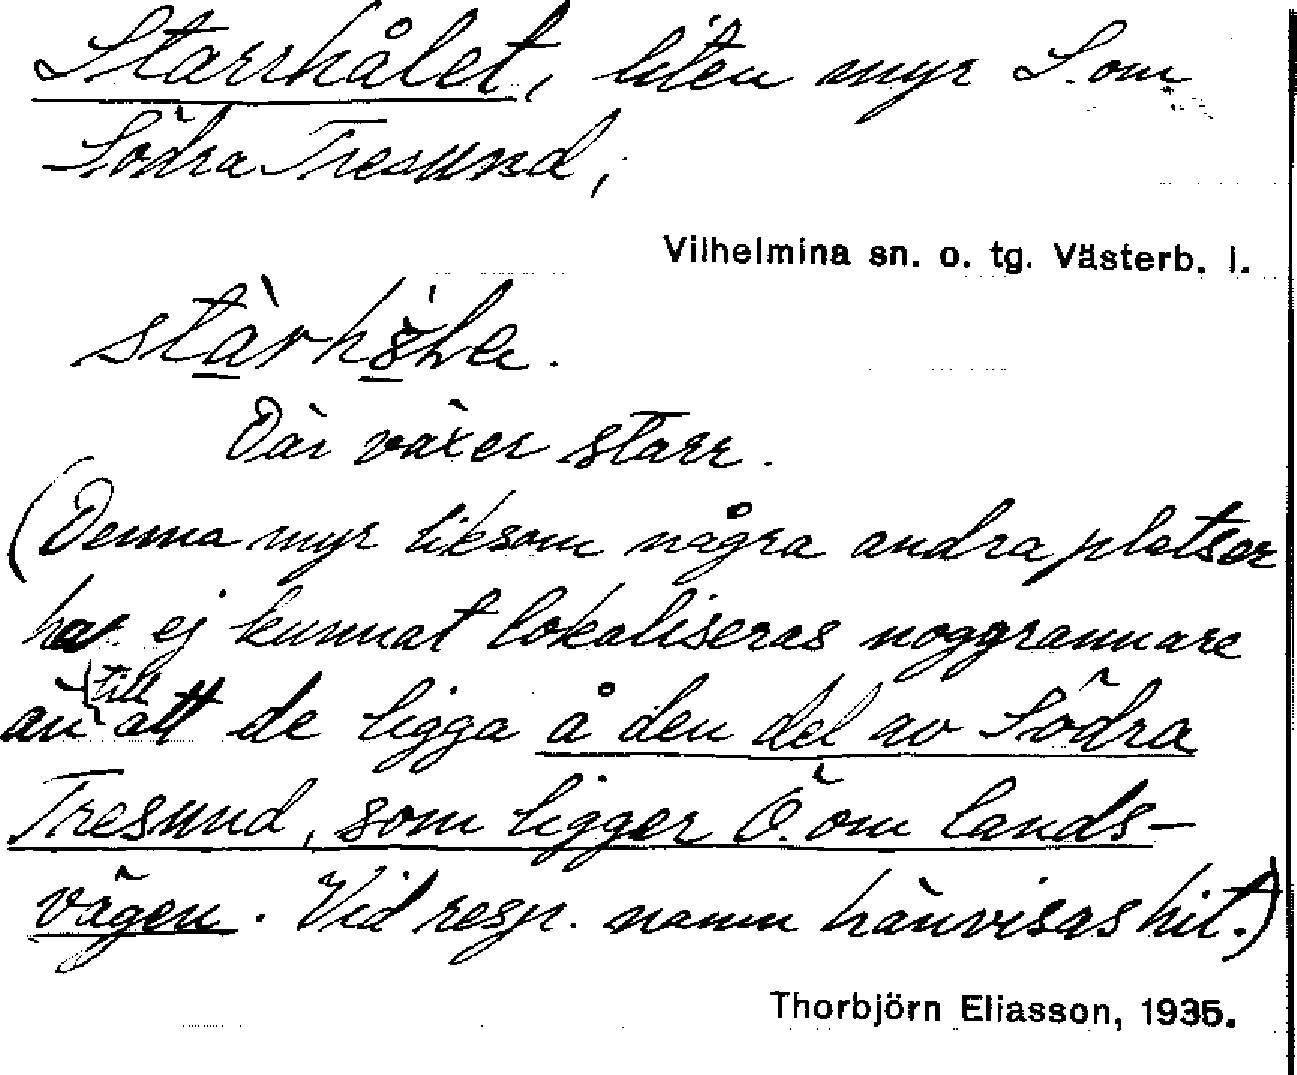 Starrhålet, liten myr S. om
Södra Tresund,
Vilhelmina sn. o. tg. Västerb. l.
Där växer starr.
(Denna myr liksom några andra platser
har ej kunnat lokaliseras noggrannare
än till att de ligga å den del av Södra
Tresund, som ligger Ö. om lands-
vägen. Vid resp. namn hänvisas hit.)
Thorbjörn Eliasson, 1935.